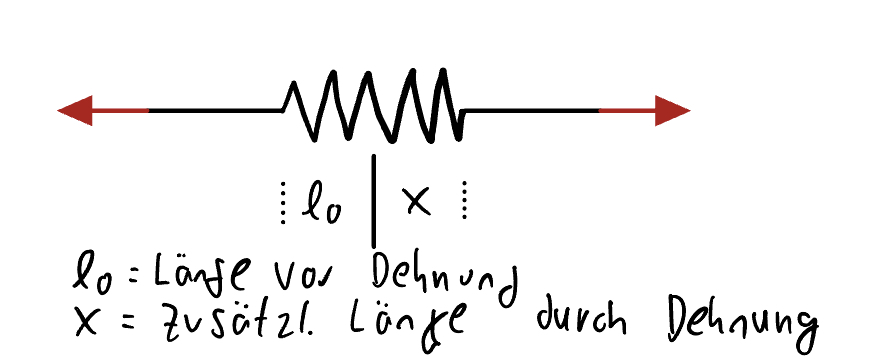 l₀ x
l₀ = Länge vor Dehnung
x = zusätzl. Länge durch Dehnung